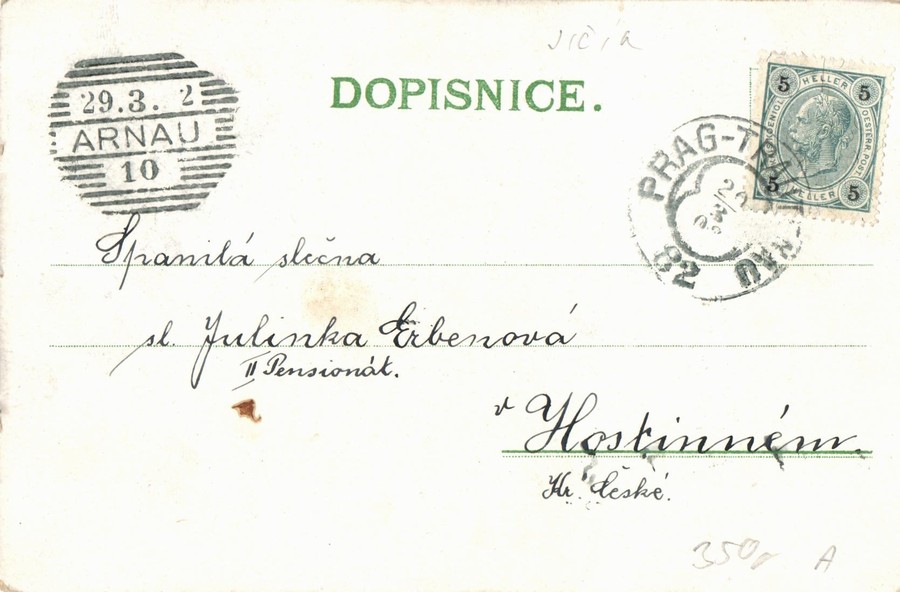 Jičín
DOPISNICE.
29.3. 2
ARNAU
10
5 HELLER 5
5 HELLER 5
OESTERR.POST
PRAG-TRAUTENAU
3
82
Spanilá slečna
sl. Julinka Erbenová
II Pensionát.
v Hostinném.
Kr. České.
350,-
A